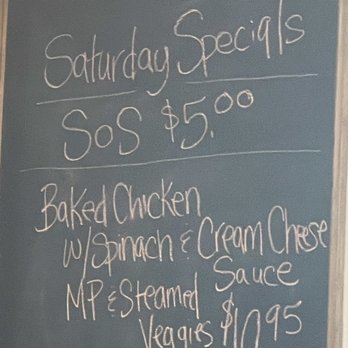 Saturday Specials
SoS $5.00
Baked Chicken
w/Spinach & Cream Cheese
Sauce
MP & Steamed
Veggies $10.95